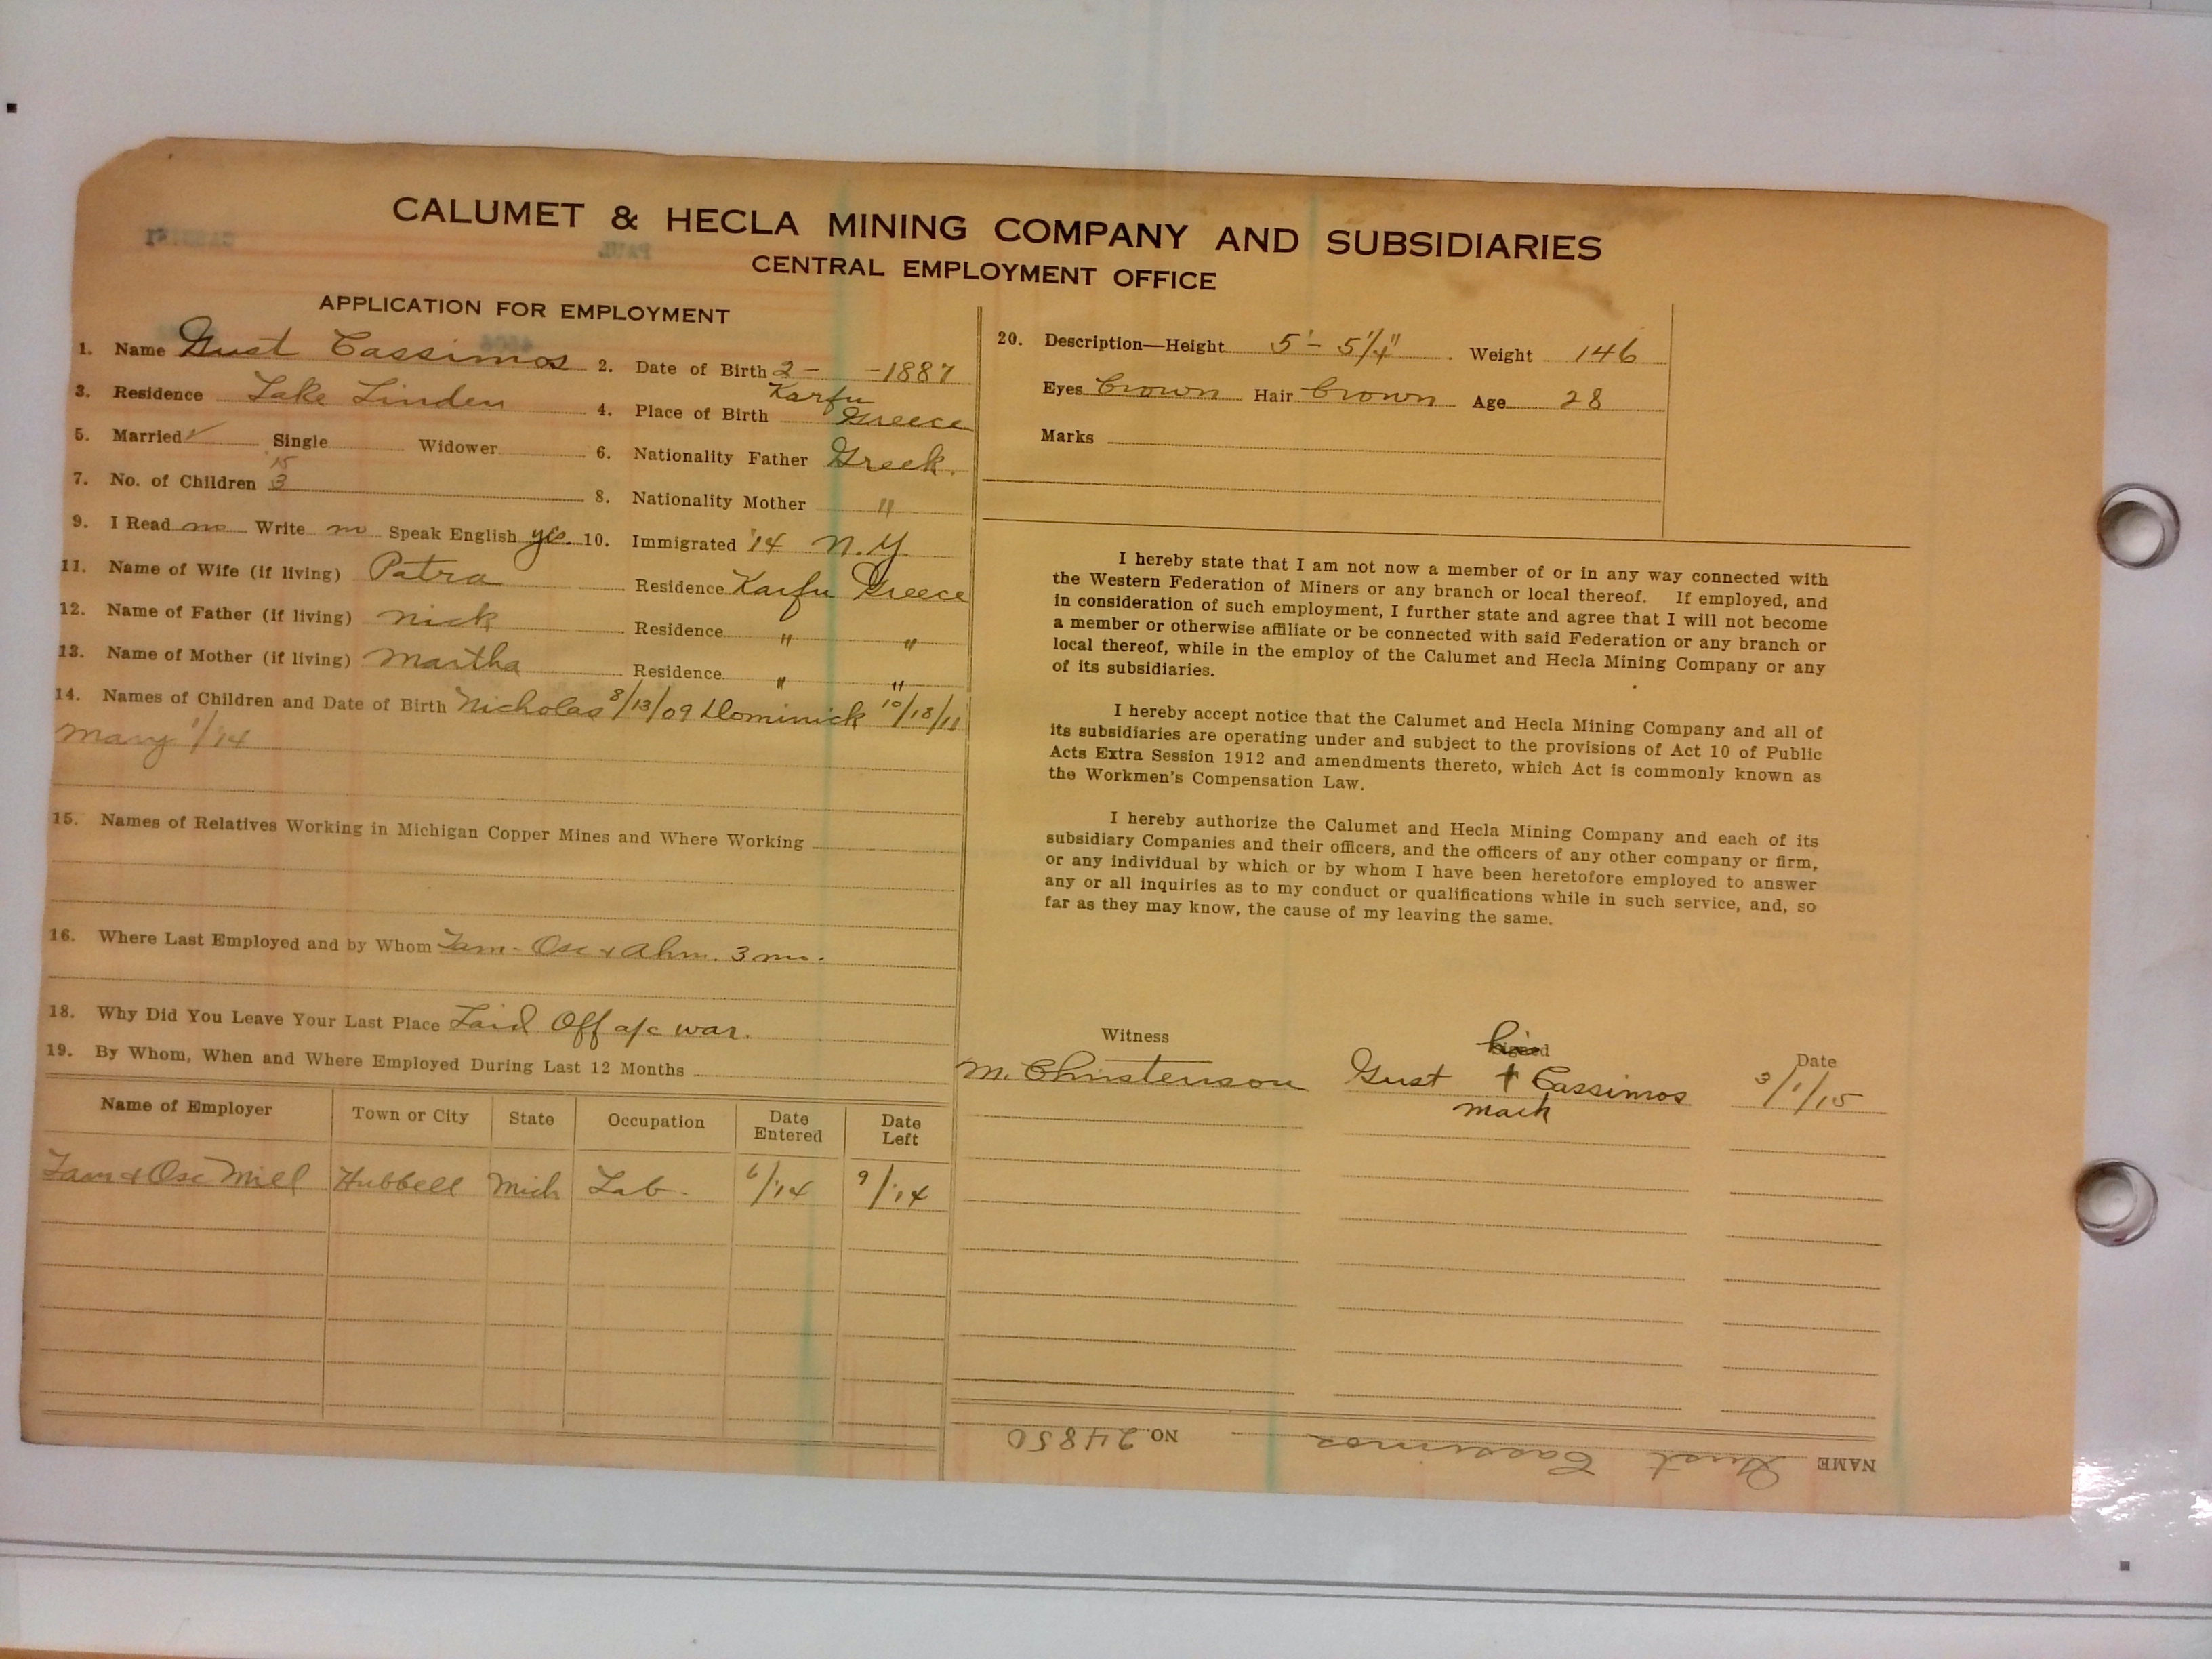 CALUMET & HECLA MINING COMPANY AND SUBSIDIARIES
CENTRAL EMPLOYMENT OFFICE
APPLICATION FOR EMPLOYMENT
1. Name Gust Cassimos 2. Date of Birth 2 - - 1887
3. Residence Lake Linden 4. Place of Birth Karfu Greece
5. Married ✓ Single Widower 6. Nationality Father Greek.
15
7. No. of Children 3 8. Nationality Mother "
9. I Read no Write no Speak English yes. 10. Immigrated '14 N.Y.
11. Name of Wife (if living) Patra Residence Karfu Greece
12. Name of Father (if living) Nick Residence " "
13. Name of Mother (if living) Martha Residence " "
14. Names of Children and Date of Birth Nicholas 8/13/09 Dominick 10/18/11
Mary 1/14
15. Names of Relatives Working in Michigan Copper Mines and Where Working
16. Where Last Employed and by Whom Tam - Osc & Ahm. 3 mo.
18. Why Did You Leave Your Last Place Laid Off a/c war.
19. By Whom, When and Where Employed During Last 12 Months
Name of Employer Town or City State Occupation Date Entered Date Left
Tam & Osc Mill Hubbell Mich Lab. 6/'14 9/'14
20. Description—Height 5' - 5 1/4" Weight 146
Eyes brown Hair brown Age 28
Marks
I hereby state that I am not now a member of or in any way connected with
the Western Federation of Miners or any branch or local thereof. If employed, and
in consideration of such employment, I further state and agree that I will not become
a member or otherwise affiliate or be connected with said Federation or any branch or
local thereof, while in the employ of the Calumet and Hecla Mining Company or any
of its subsidiaries.
I hereby accept notice that the Calumet and Hecla Mining Company and all of
its subsidiaries are operating under and subject to the provisions of Act 10 of Public
Acts Extra Session 1912 and amendments thereto, which Act is commonly known as
the Workmen's Compensation Law.
I hereby authorize the Calumet and Hecla Mining Company and each of its
subsidiary Companies and their officers, and the officers of any other company or firm,
or any individual by which or by whom I have been heretofore employed to answer
any or all inquiries as to my conduct or qualifications while in such service, and, so
far as they may know, the cause of my leaving the same.
Witness Signed Date
his
M. Christenson Gust + Cassimos 3/1/15
mark
NAME Gust Cassimos NO. 24850